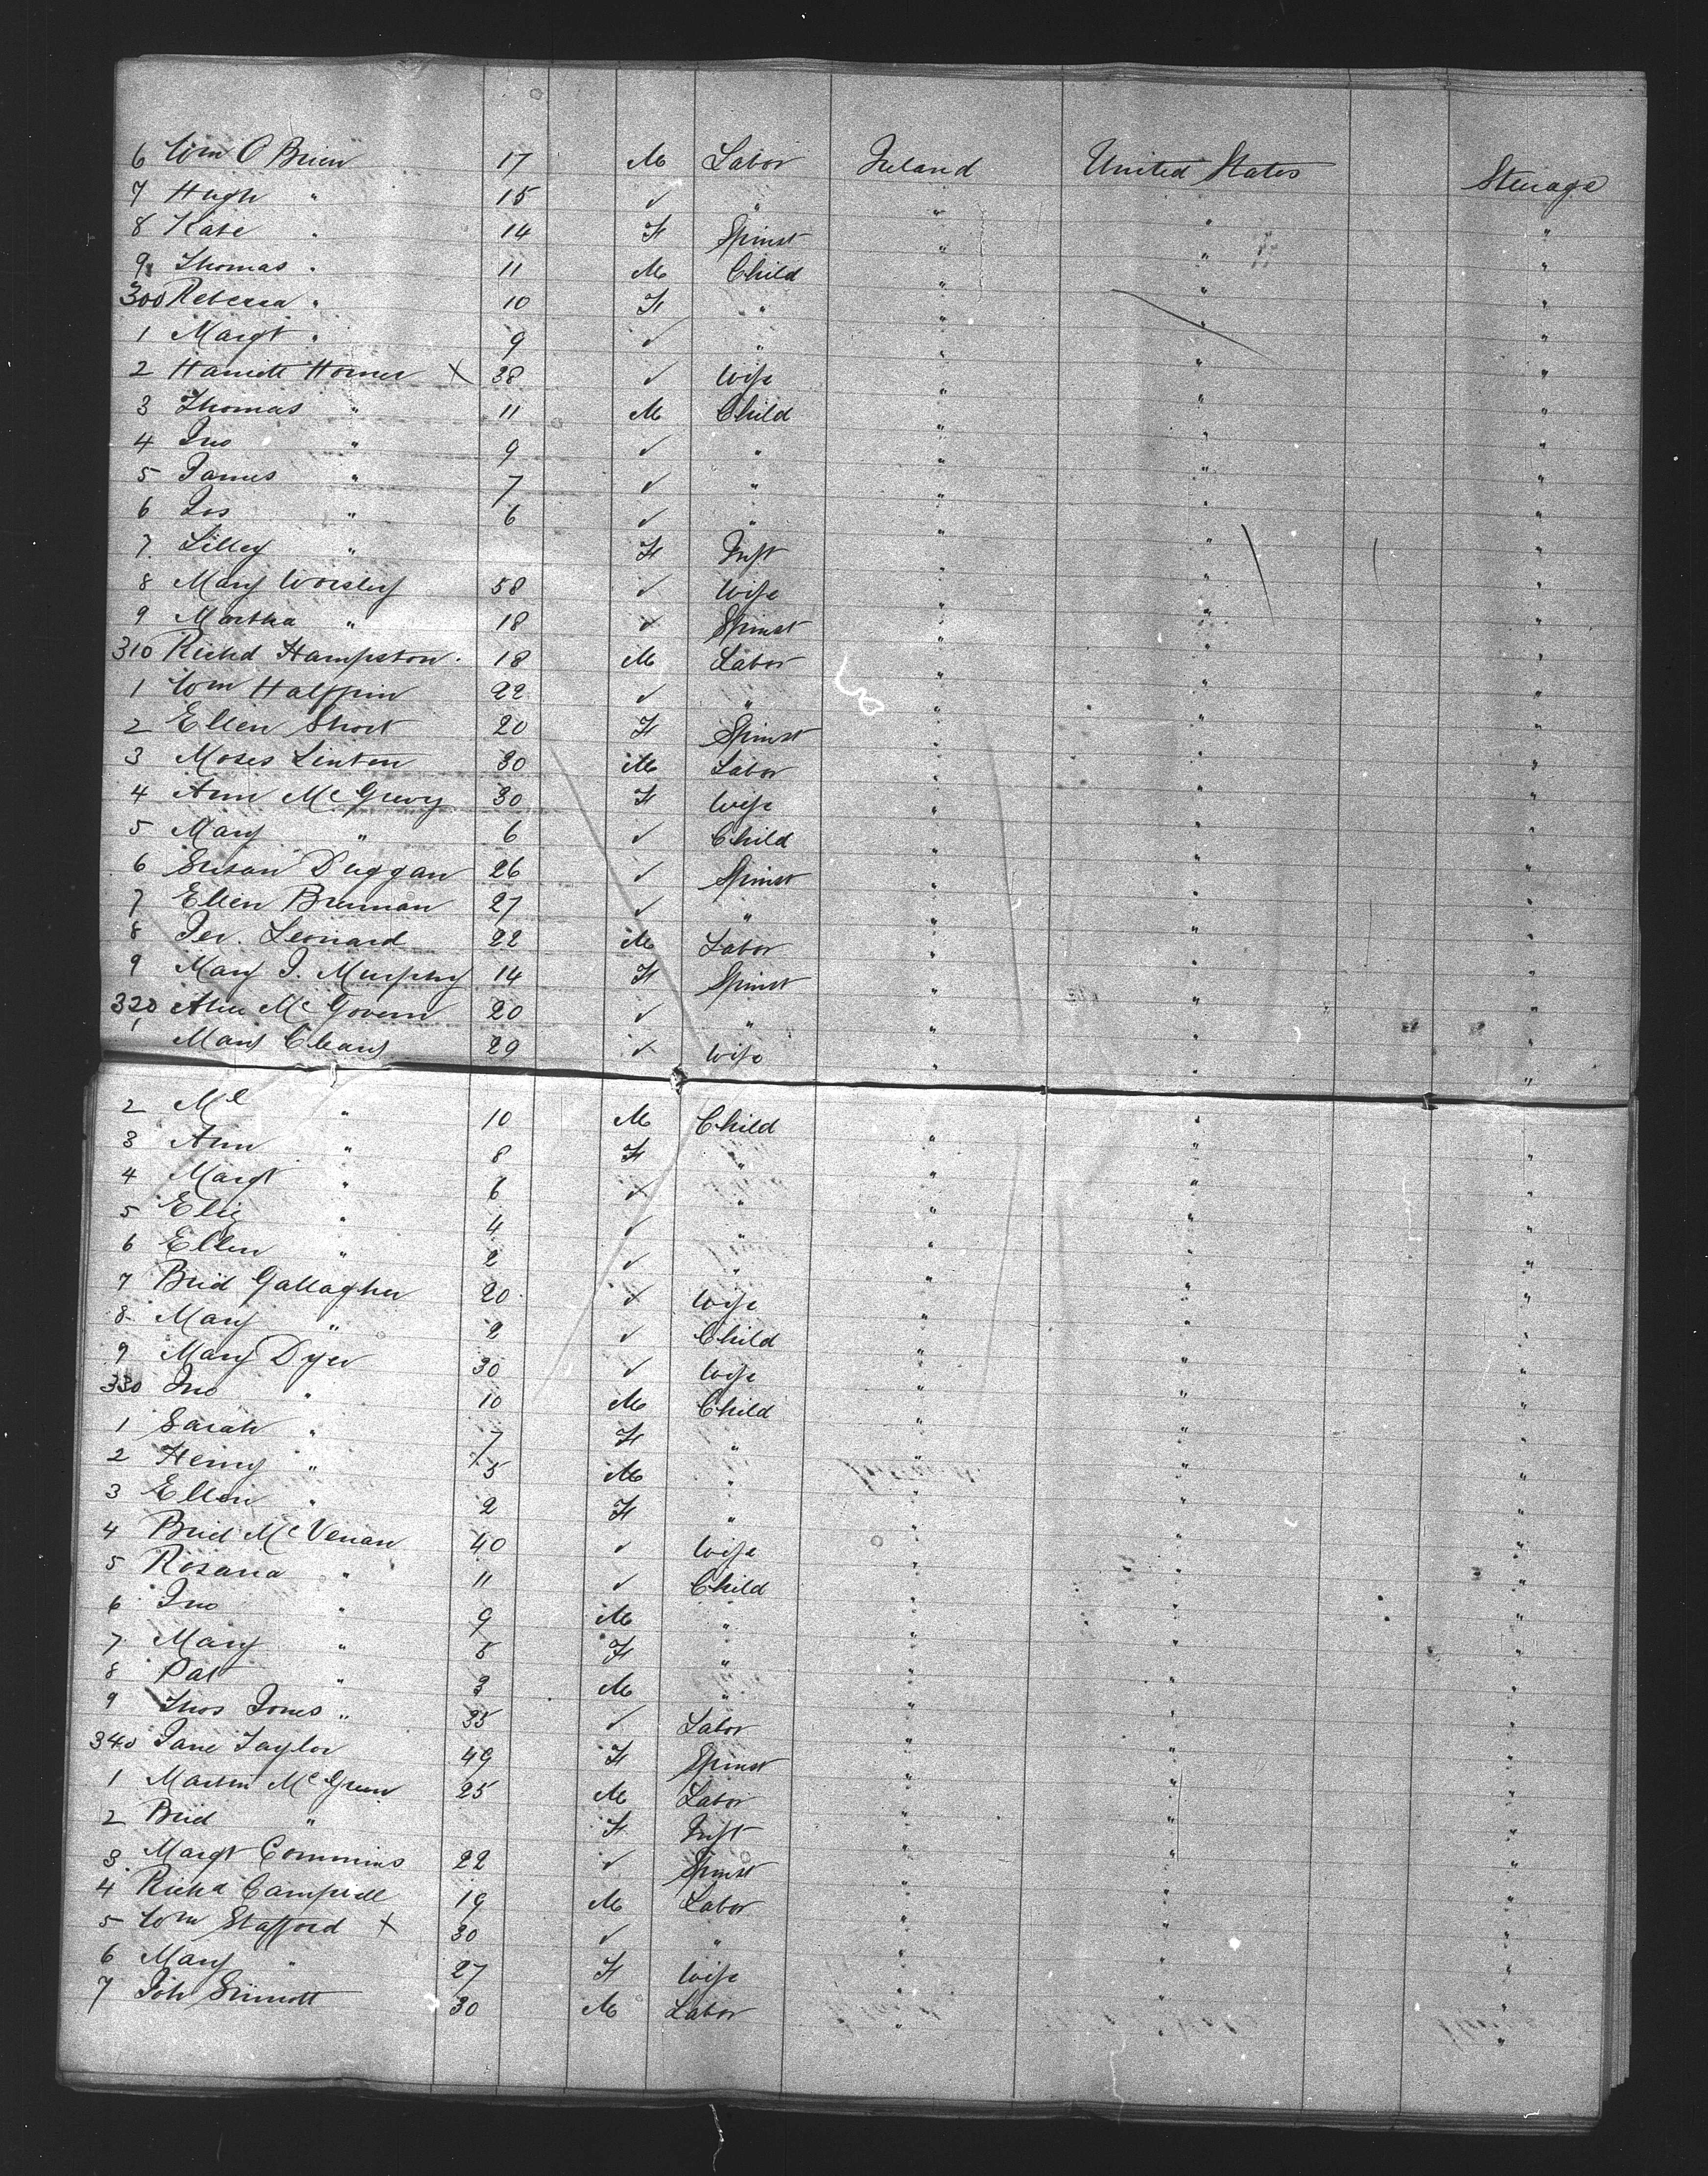 6 Wm O'Brien 17 M Labor Ireland United States Steerage
7 Hugh " 15 ✓ " " " "
8 Kate " 14 F Spinst " " "
9 Thomas " 11 M Child " " "
300 Rebecca " 10 F " " " "
1 Margt " 9 ✓ " " " "
2 Harriett Horner X 38 ✓ Wife " " "
3 Thomas " 11 M Child " " "
4 Jno " 9 ✓ " " " "
5 James " 7 ✓ " " " "
6 Jos " 6 ✓ " " " "
7 Lilley " F Inft " " "
8 Mary Worsley 58 ✓ Wife " " "
9 Martha " 18 ✓ Spinst " " "
310 Richd Hampston 18 M Labor " " "
1 Wm Halfpin 22 ✓ " " " "
2 Ellen Short 20 F Spinst " " "
3 Moses Linton 30 M Labor " " "
4 Ann 30 F Wife " " "
5 Mary " 6 ✓ Child " " "
6 Susan Duggan 26 ✓ Spinst " " "
7 Ellen Brennan 27 ✓ " " " "
8 Jer. Leonard 22 M Labor " " "
9 Mary J. Murphy 14 F Spinst " " "
320 Alice McGovern 20 ✓ " " " "
1 Mary Cleary 29 ✓ Wife " " "
2 Ml " 10 M Child " " "
3 Ann " 8 F " " " "
4 Margt " 6 ✓ " " " "
5 Eliz " 4 ✓ " " " "
6 Ellen " 2 ✓ " " " "
7 Brid Gallagher 20 ✓ Wife " " "
8 Mary " 2 ✓ Child " " "
9 Mary Dyer 30 ✓ Wife " " "
330 Jno " 10 M Child " " "
1 Sarah " 7 F " " " "
2 Henry " 5 M " " " "
3 Ellen " 2 F " " " "
4 Brid McVenan 40 ✓ Wife " " "
5 Rosana " 11 ✓ Child " " "
6 Jno " 9 M " " " "
7 Mary " 8 F " " " "
8 Pat " 3 M " " " "
9 Thos Jones " 35 ✓ Labor " " "
340 Jane Taylor 49 F Spinst " " "
1 Martin 25 M Labor " " "
2 Brid " F Inft " " "
3 Margt Commins 22 ✓ Spinst " " "
4 Richd Campbell 19 M Labor " " "
5 Wm Stafford X 30 ✓ " " " "
6 Mary " 27 F Wife " " "
7 Joh Sinnott 30 M Labor " " "